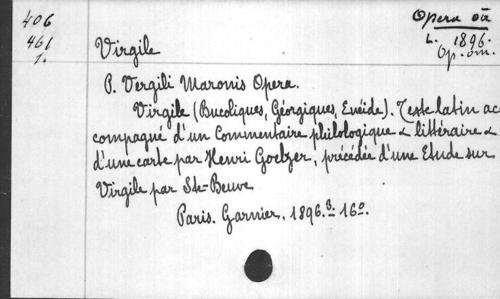 406
461
1.
Opera oīa
L. 1896.
Op. om.
Virgile
P. Vergili Maronis Opera.
Virgile (Bucoliques, Géorgiques, Enéide). Texte latin ac
compagné d'un Commentaire philologique & littéraire &
d'une carte par Henri Goelzer, précédée d'une Etude sur
Virgile par Ste-Beuve
Paris. Garnier. 1896. 16º.